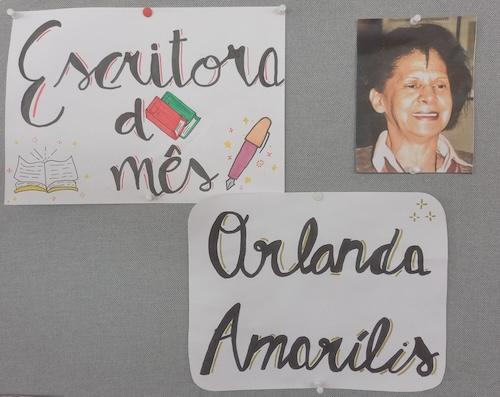 Escritora
do
mês
Orlanda
Amarílis